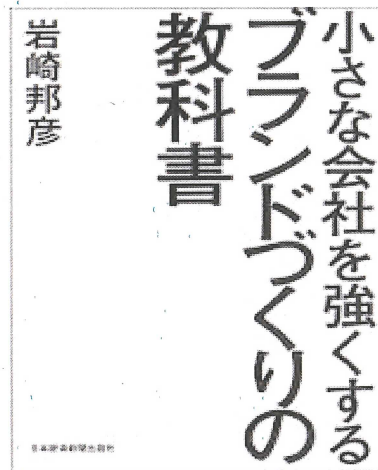 小さな会社を強くする
ブランドづくりの
教科書
岩崎邦彦
日本経済新聞出版社